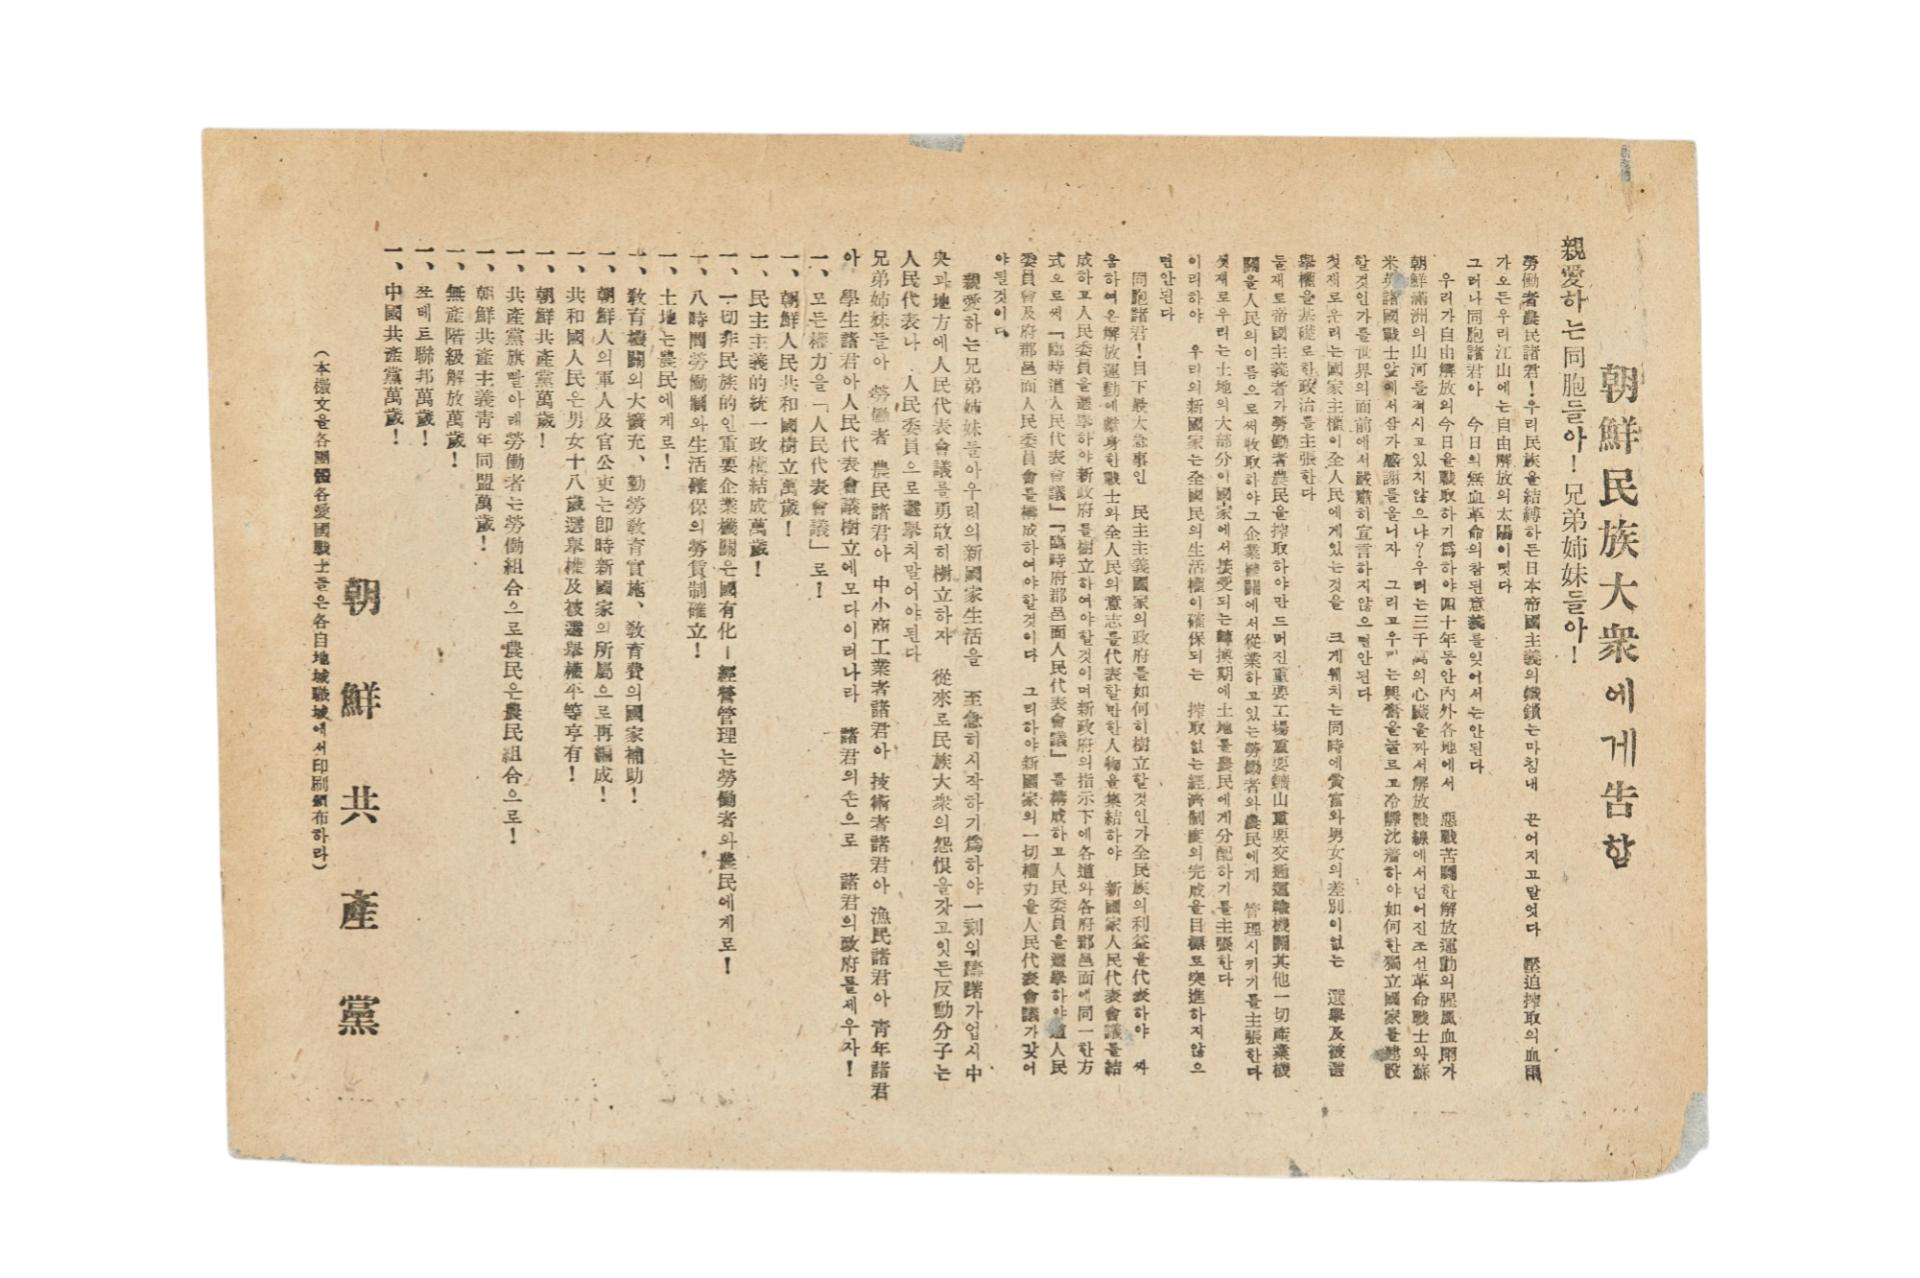 朝鮮民族大衆에게告함
親愛하는同胞들아！兄弟姉妹들아！
勞働者農民諸君！우리民族을結縛하든日本帝國主義의鐵鎖는마침내 끈어지고말엇다 壓迫搾取의血雨가
가오든우리江山에는自由解放의太陽이떳다
그러나同胞諸君아 今日의無血革命의참된意義를잊어서는안된다
우리가自由解放의今日을戰取하기爲하야四十年동안內外各地에서 惡戰苦鬪한解放運動의腥風血雨가
朝鮮滿洲의山河를적시고있지않으냐？우리는三千萬의心臟을짜서解放戰線에서넘어진조선革命戰士와蘇
米英諸國戰士앞에서삼가感謝를올니자 그리고우리는興奮을눌르고冷靜沈着하야如何한獨立國家를建設
할것인가를世界의面前에서嚴肅히宣言하지않으면안된다
첫재로우리는國家主權이全人民에게있는것을 크게웨치는同時에貧富와男女의差別이없는 選擧及被選
擧權을基礎로한政治를主張한다
둘재로帝國主義者가勞働者農民을搾取하야만드러진重要工場重要鑛山重要交通運輸機關其他一切產業機
關을人民의이름으로써收取하야그企業機關에서從業하고있는勞働者와農民에게 管理시키기를主張한다
셋재로우리는土地의大部分이國家에서接受되는轉換期에土地를農民에게分配하기를主張한다
이리하야 우리의新國家는全國民의生活權이確保되는 搾取없는經濟制度의完成을目標로突進하지않으
면안된다
同胞諸君！目下最大急事인 民主主義國家의政府를如何히樹立할것인가全民族의利益을代表하야 싸
움하여온解放運動에獻身한戰士와全人民의意志를代表할만한人物을集結하야 新國家人民代表會議를結
成하고人民委員을選擧하야新政府를樹立하여야할것이며新政府의指示下에各道와各府郡邑面에同一한方
式으로써「臨時道人民代表會議」「臨時府郡邑面人民代表會議」를構成하고人民委員을選擧하야道人民
委員會及府郡邑面人民委員會를構成하여야할것이다 그리하야新國家의一切權力을人民代表會議가갖어
야될것이다
親愛하는兄弟姉妹들아우리의新國家生活을 至急히시작하기爲하야一刻의躊躇가업시中
央과地方에人民代表會議를勇敢히樹立하자 從來로民族大衆의怨恨을갖고잇든反動分子는
人民代表나 人民委員으로選擧치말어야된다
兄弟姉妹들아 勞働者 農民諸君아 中小商工業者諸君아 技術者諸君아 漁民諸君아 靑年諸君
아 學生諸君아人民代表會議樹立에모다이러나라 諸君의손으로 諸君의政府를세우자！
一、모든權力을「人民代表會議」로！
一、朝鮮人民共和國樹立萬歲！
一、民主主義的統一政權結成萬歲！
一、一切非民族的인重要企業機關은國有化－經營管理는勞働者와農民에게로！
一、八時間勞働制와生活確保의勞賃制確立！
一、土地는農民에게로！
一、敎育機關의大擴充、勤勞敎育實施、敎育費의國家補助！
一、朝鮮人의軍人及官公吏는卽時新國家의所屬으로再編成！
一、共和國人民은男女十八歲選擧權及被選擧權平等享有！
一、朝鮮共產黨萬歲！
一、共產黨旗빨아래勞働者는勞働組合으로農民은農民組合으로！
一、朝鮮共產主義靑年同盟萬歲！
一、無產階級解放萬歲！
一、쏘베트聯邦萬歲！
一、中國共產黨萬歲！
朝鮮共產黨
（本檄文을各團體各愛國戰士들은各自地域職域에서印刷頒布하라）